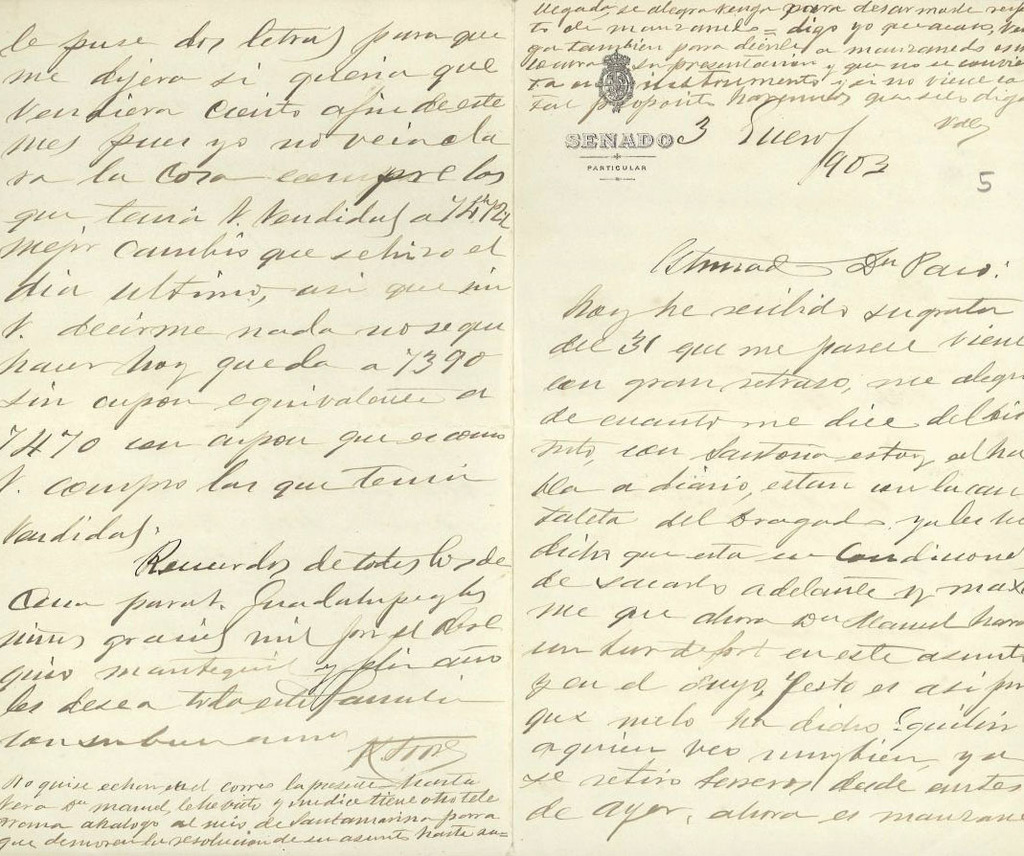 le puse dos letras para que
me dijera si queria que
vendiera ciento a fin de este
mes pues yo no veia cla
ra la cosa compre las
que tenia V. vendidas a 74
mejor cambio que se hizo el
dia ultimo, asi que sin
V. decirme nada no se que
hacer hoy queda a 7390
sin cupon equivalente a
7470 con cupon que es como
V. compro las que tenia
vendidas.
Recuerdos de todos los de
casa para V. Guadalupe y los
niños gracias mil por el obse
quio y feliz año
les desea toda esta familia
con su buen amo
No quise echar al correo la presente hasta
ver a Dn Manuel le he visto y me dice tiene otro tele
grama analogo al mio de Santamarina para
que demoren la resolucion de su asunto hasta su=
llegada, se alegra venga para desarmarle respec
to de manzanedo = digo yo que acaso, ven
ga tambien para decirle a manzanedo
su presentacion y que no se convier
ta en instrumento, si no viene co
tal proposito haremos que se lo diga
Vale
SENADO
PARTICULAR
3 Enero/
903
5
Estimado Dn Paco:
hoy he recibido su grata
del 31 que me parece viene
con gran retraso, me alegro
de cuanto me dice del
con Santoña estoy al ha
bla a diario, estan con la can
taleta del Dragado, ya les he
dicho que esta en condiciones
de sacarlo adelante y max
me que ahora Dn Manuel hara
un tour de fort en este asunto
y en el suyo, y esto es asi por
que me lo ha dicho Equilior
a quien veo muy bien, ya
se retiro desde antes
de ayer, ahora es manzane